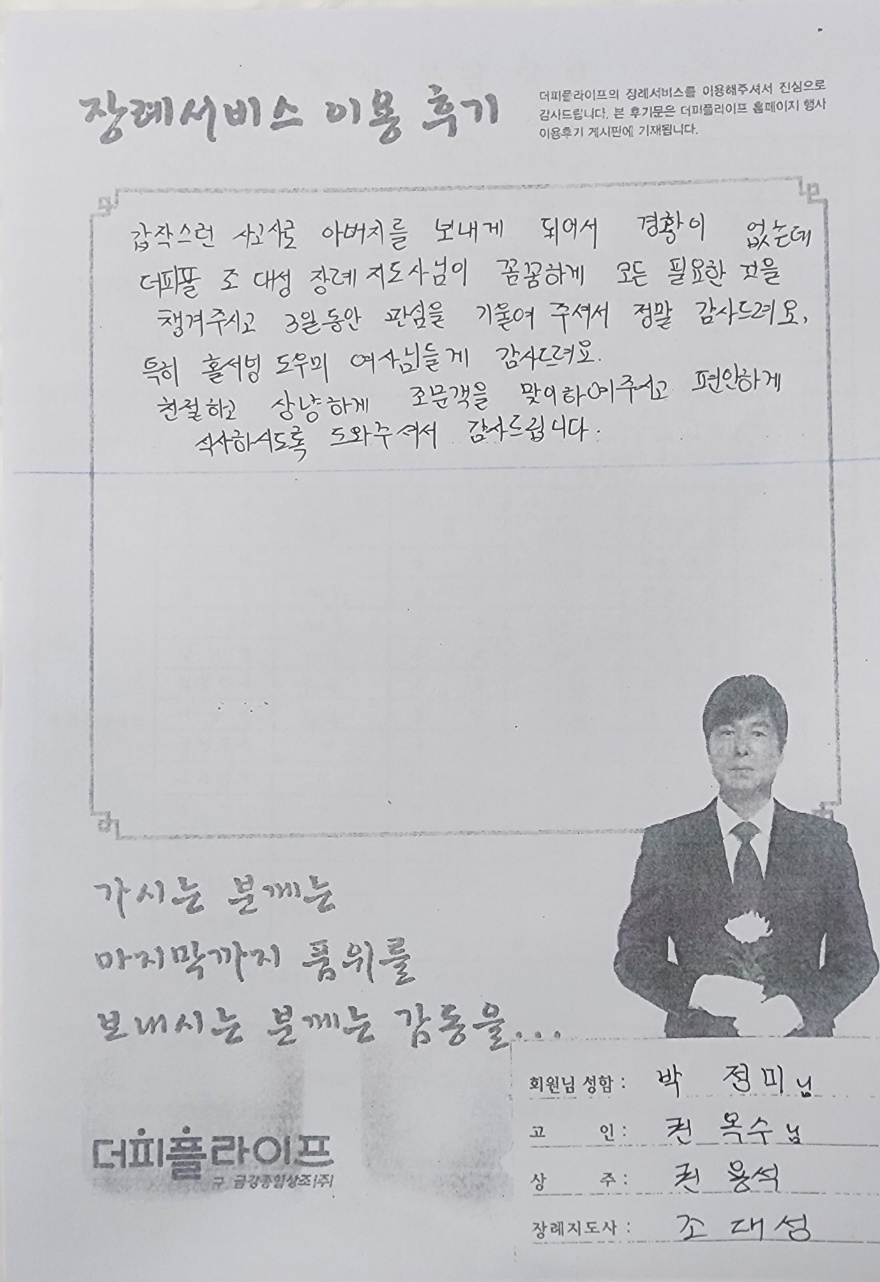 장례서비스 이용 후기
더피플라이프의 장례서비스를 이용해주셔서 진심으로
감사드립니다. 본 후기문은 더피플라이프 홈페이지 행사
이용후기 게시판에 기재됩니다.
갑작스런 사고사로 아버지를 보내게 되어서 경황이 없는데
더피플 조 대성 장례 지도사님이 꼼꼼하게 모든 필요한 것을
챙겨주시고 3일동안 관심을 기울여 주셔서 정말 감사드려요,
특히 홀서빙 도우미 여사님들게 감사드려요.
친절하고 상냥하게 조문객을 맞이하여주시고 편안하게
식사하시도록 도와주셔서 감사드립니다.
가시는 분께는
마지막까지 품위를
보내시는 분께는 감동을...
더피플라이프
구 금강종합상조(주)
회원님 성함 : 박 정미님
고 인 : 권 옥수님
상 주 : 권 용석
장례지도사 : 조 대성